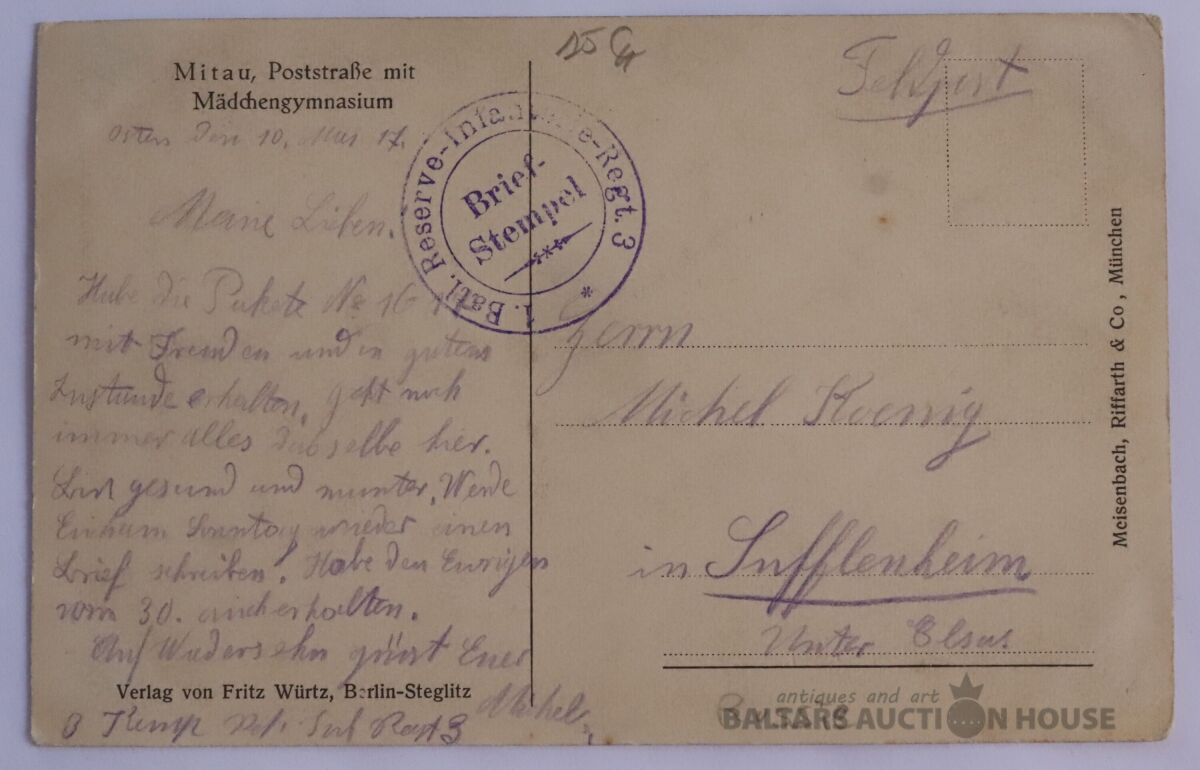 Mitau, Poststraße mit
Mädchengymnasium
15
Feldpost
Osten den 10. Mai 17.
Meine Lieben.
1. Batl. Reserve-Infanterie-Regt. 3 *
Brief-
Stempel
Habe die Pakete No 16
mit Freuden und in gutem
Zustande erhalten. Geht noch
immer alles dasselbe hier.
Bin gesund und munter. Werde
Sonntag wieder einen
Brief schreiben. Habe den Eurigen
vom 30. auch erhalten.
Auf Wiedersehn grüsst Euer
Michel
Verlag von Fritz Würtz, Berlin-Steglitz
3 Komp Res. Inf Regt 3
Herrn
Michel Koenig
in Sufflenheim
Unter Elsas
Meisenbach, Riffarth & Co., München
antiques and art
BALTARS AUCTION HOUSE